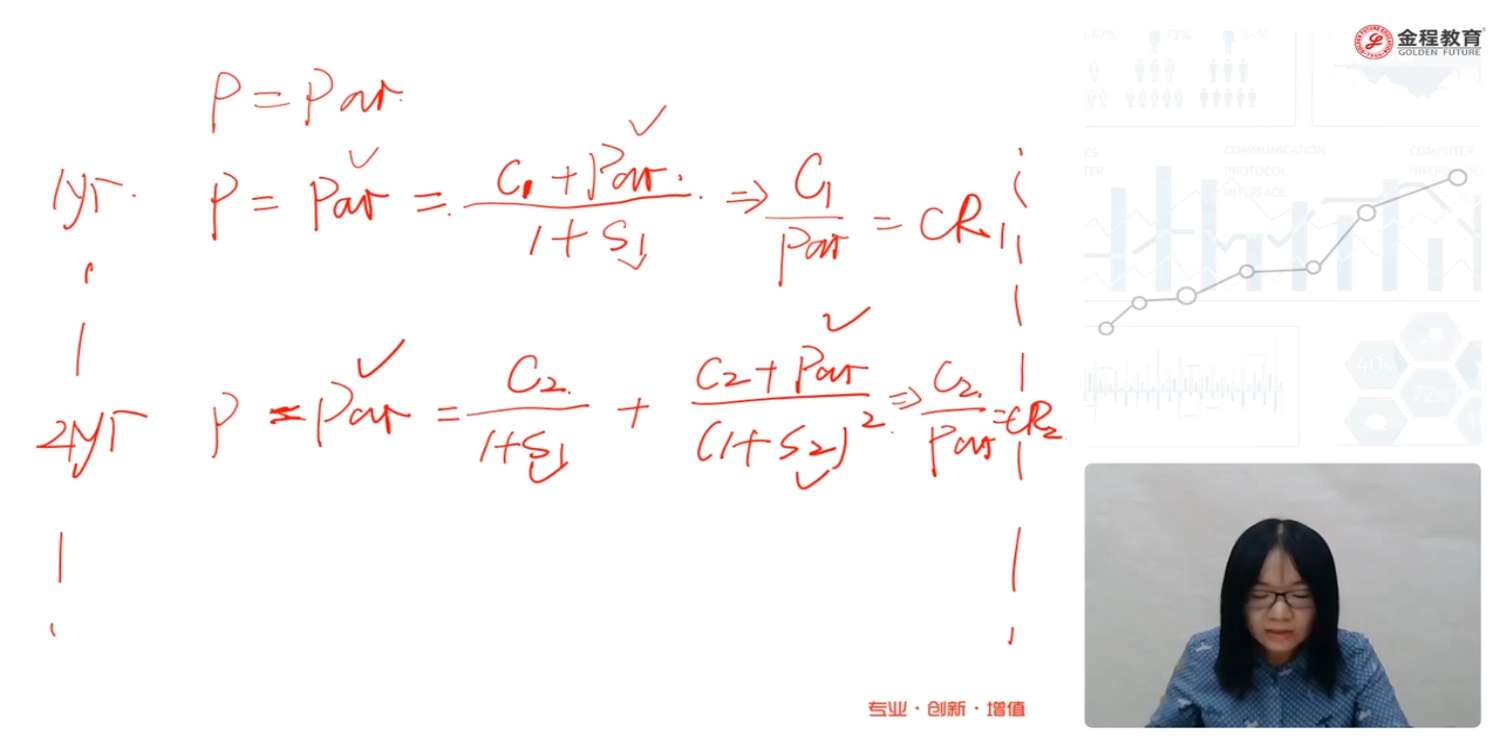 金程教育
GOLDEN FUTURE
P = Par.
1yr. P = Par = (C1 + Par.) / (1 + S1) ⇒ C1 / Par = CR1
2yr P = Par = C2 / (1+S1) + (C2 + Par) / (1+S2)^2 ⇒ C2 / Par = CR2
COMMUNICATION
PROTOCOL
INTERFACE
COMPUTER
40%
专业·创新·增值